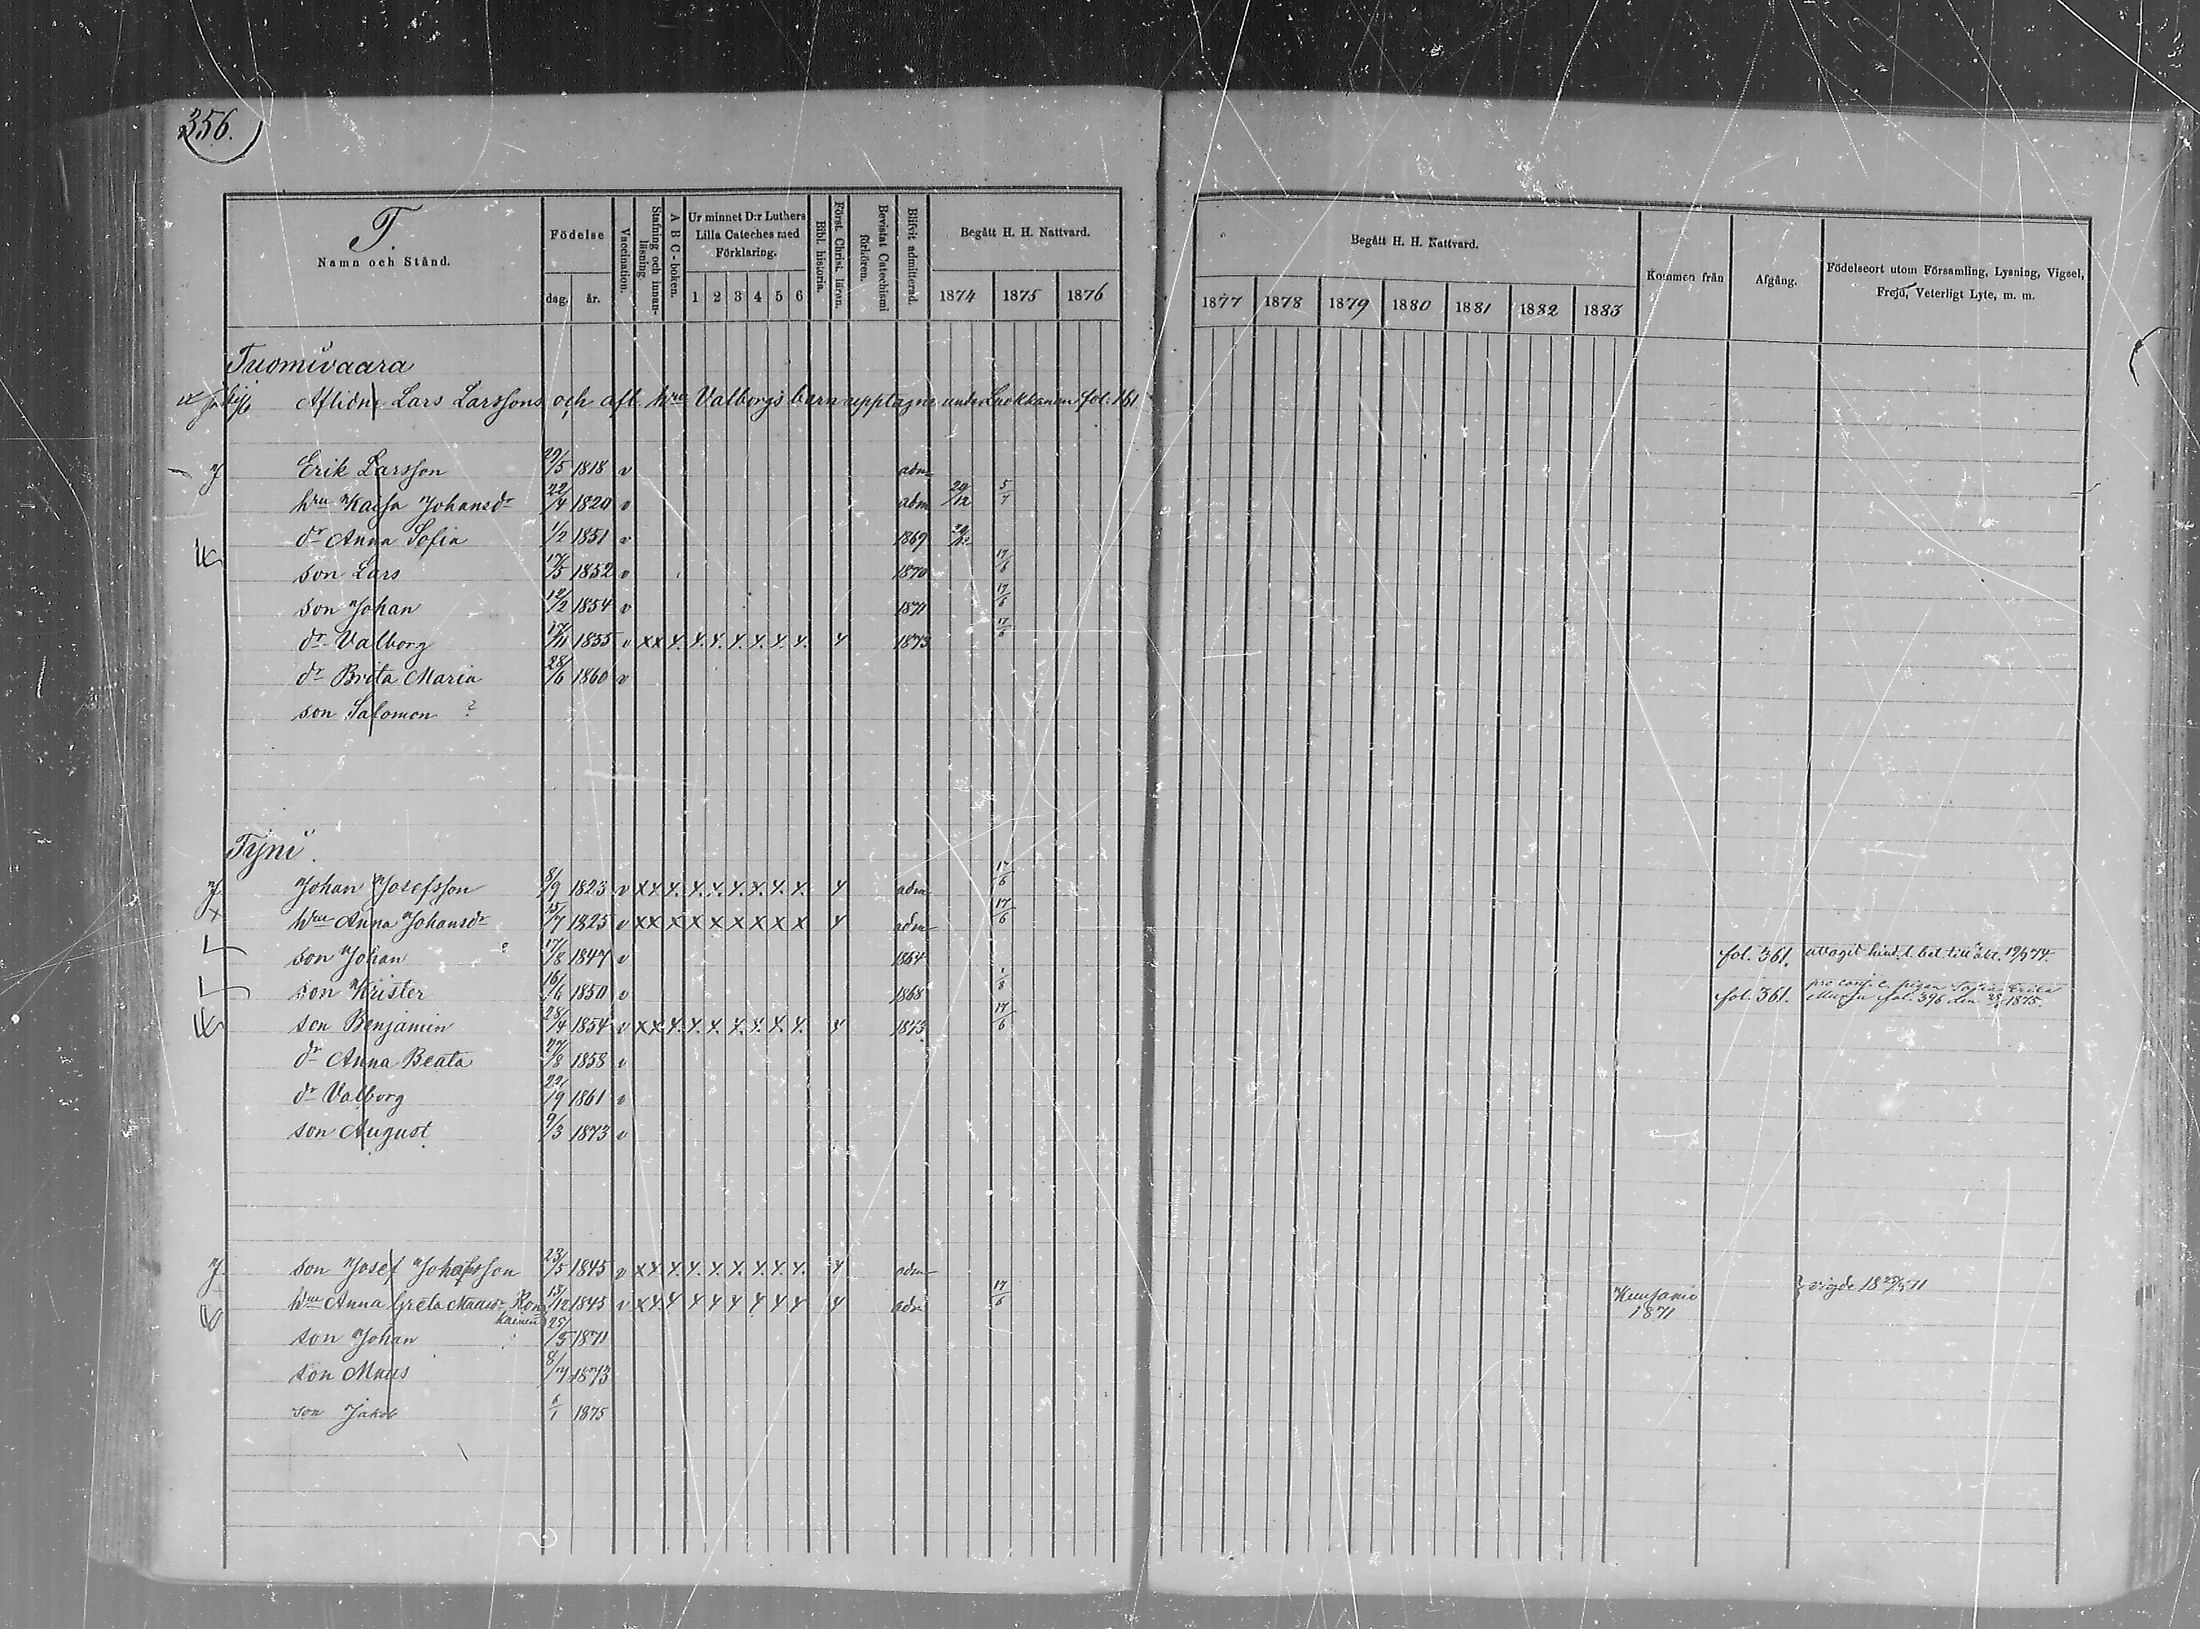 356.
T.
Namn och Stånd.
Födelse
dag.
år.
Vaccination.
Stafning och innanläsning.
A B C-boken.
Ur minnet D:r Luthers Lilla Cateches med Förklaring.
1 2 3 4 5 6
Bibl. historia.
Först. Christ. läran.
Bevistat Catechismi förhören.
Blifvit admitterad.
Begått H. H. Nattvard.
1874 1875 1876
Begått H. H. Nattvard.
1877 1878 1879 1880 1881 1882 1883
Kommen från
Afgång.
Födelseort utom Församling, Lysning, Vigsel, Frejd, Veterligt Lyte, m. m.
Tuomivaara
Aflidne Lars Larssons och afl. hru Valborgs barn upptagne under fol. 161
Erik Larsson 29/5 1818 v adm
hru Kaisa Johansdr 22/4 1820 v adm 29/12 5/7
dr Anna Sofia 1/2 1851 v 1869
son Lars 17/5 1852 v 1870 17/6
son Johan 12/2 1854 v 1871 17/6
dr Valborg 17/11 1855 v x x 4. 4. 4. 4. 4. 4. 4. 4 1873 17/6
dr Brita Maria 28/6 1860 v
son Salomon ?
Tyni.
Johan Josefsson 8/9 1823 v x 4. 4. 4. 4. 4. 4. 4. 4. 4 adm 17/6
hru Anna Johansdr 25/7 1825 v x x x x x x x x x 4 adm 17/6
son Johan 17/8 1847 v 1864 fol. 361. uttagit
son Krister 16/6 1850 v 1868 1/8 fol. 361. fol. 396 den 1875.
son Benjamin 28/4 1854 v x x 4. 4. 4. 4. 4. 4. 4. 4 1873 17/6
dr Anna Beata 27/8 1858 v
dr Valborg 22/9 1861 v
son August 9/3 1873 v
son Josef Johansson 23/5 1845 v x 4 4. 4. 4. 4. 4. 4. 4. 4 adm
hru Anna Greta Mattsdr 13/12 1845 v x 4. 4 4 4 4 4 4 4 4 adm 17/6 Kuusamo 1871 vigde
son Johan 25/5 1871
son 8/7 1873
son Jakob 6/1 1875